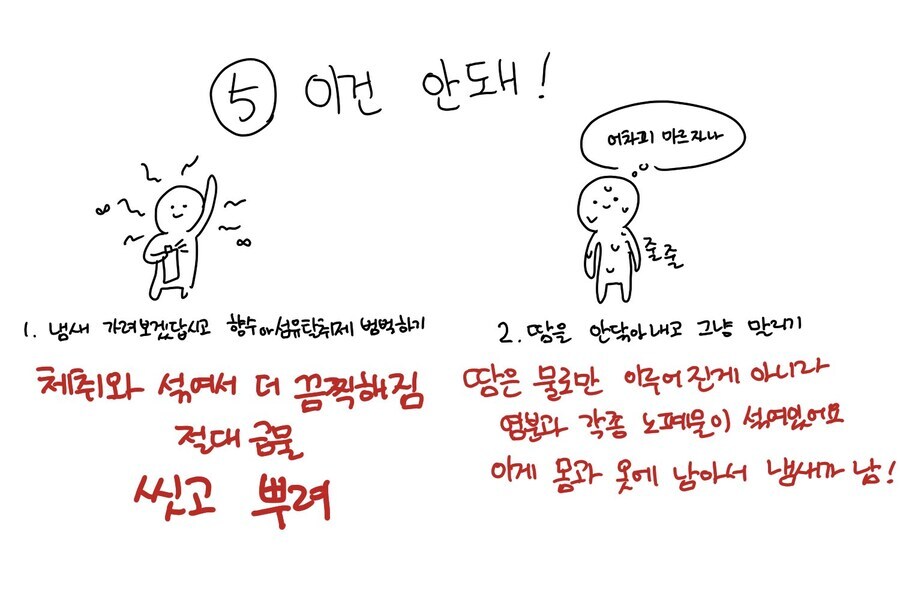 ⑤ 이건 안돼!
1. 냄새 가려보겠답시고 향수or섬유탈취제 범벅하기
체취와 섞여서 더 끔찍해짐
절대 금물
씻고 뿌려
어차피 마르자나
줄줄
2. 땀을 안닦아내고 그냥 말리기
땀은 물로만 이루어진게 아니라
염분과 각종 노폐물이 섞여있어요
이게 몸과 옷에 남아서 냄새가 남!